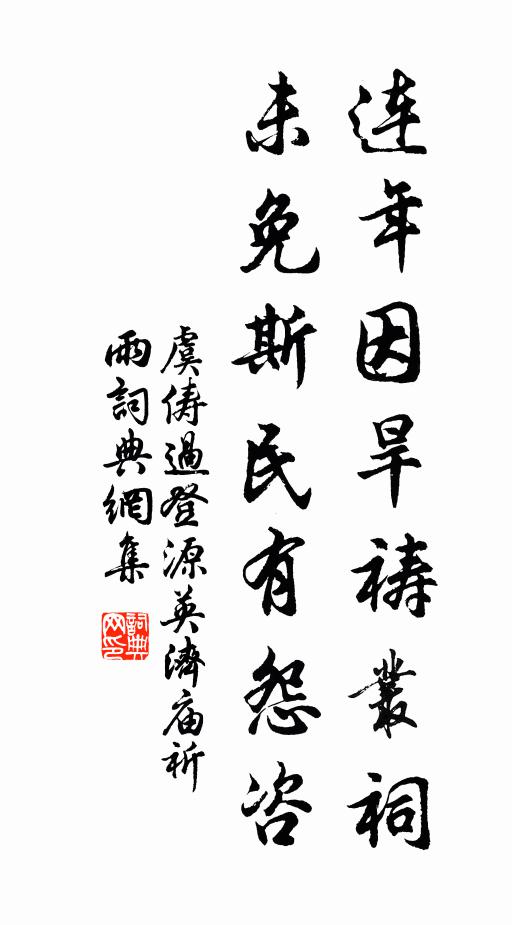 連年因旱禱叢祠
未免斯民有怨咨
虞儔過登源英濟廟祈
雨詞典網集
詞典网印